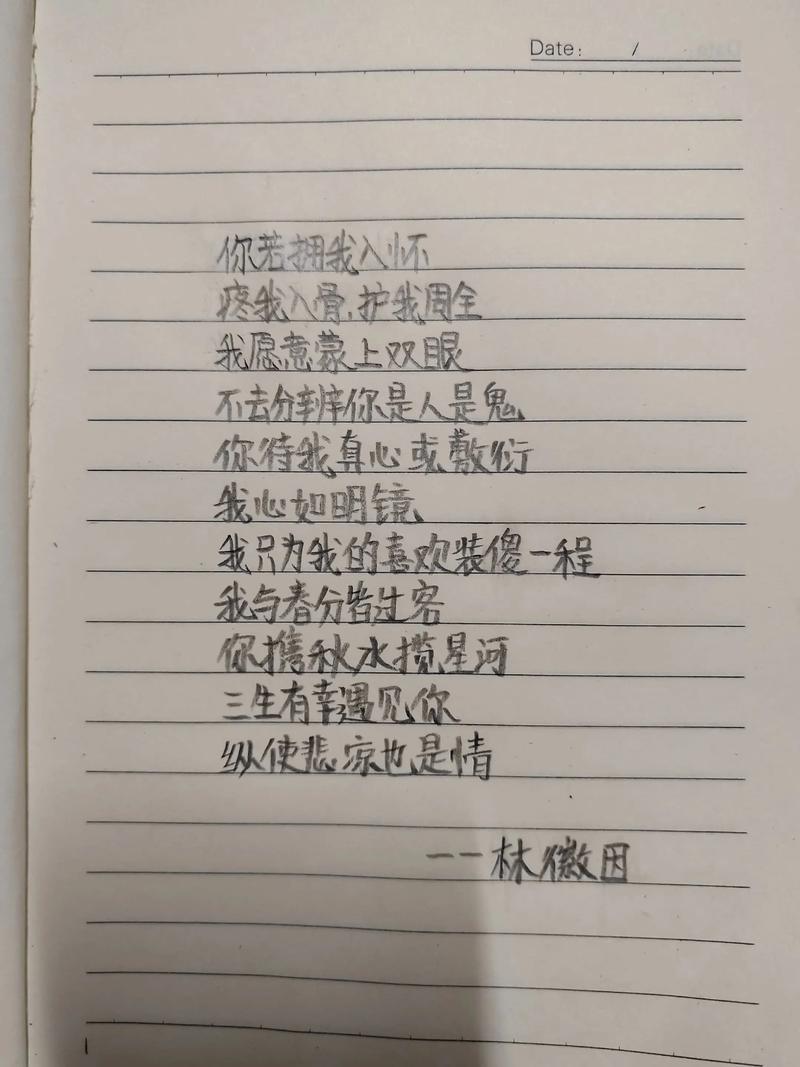 Date: /
你若拥我入怀
疼我入骨,护我周全
我愿意蒙上双眼
不去分辨你是人是鬼
你待我真心或敷衍
我心如明镜
我只为我的喜欢装傻一程
我与春分皆过客
你携秋水揽星河
三生有幸遇见你
纵使悲凉也是情
——林徽因